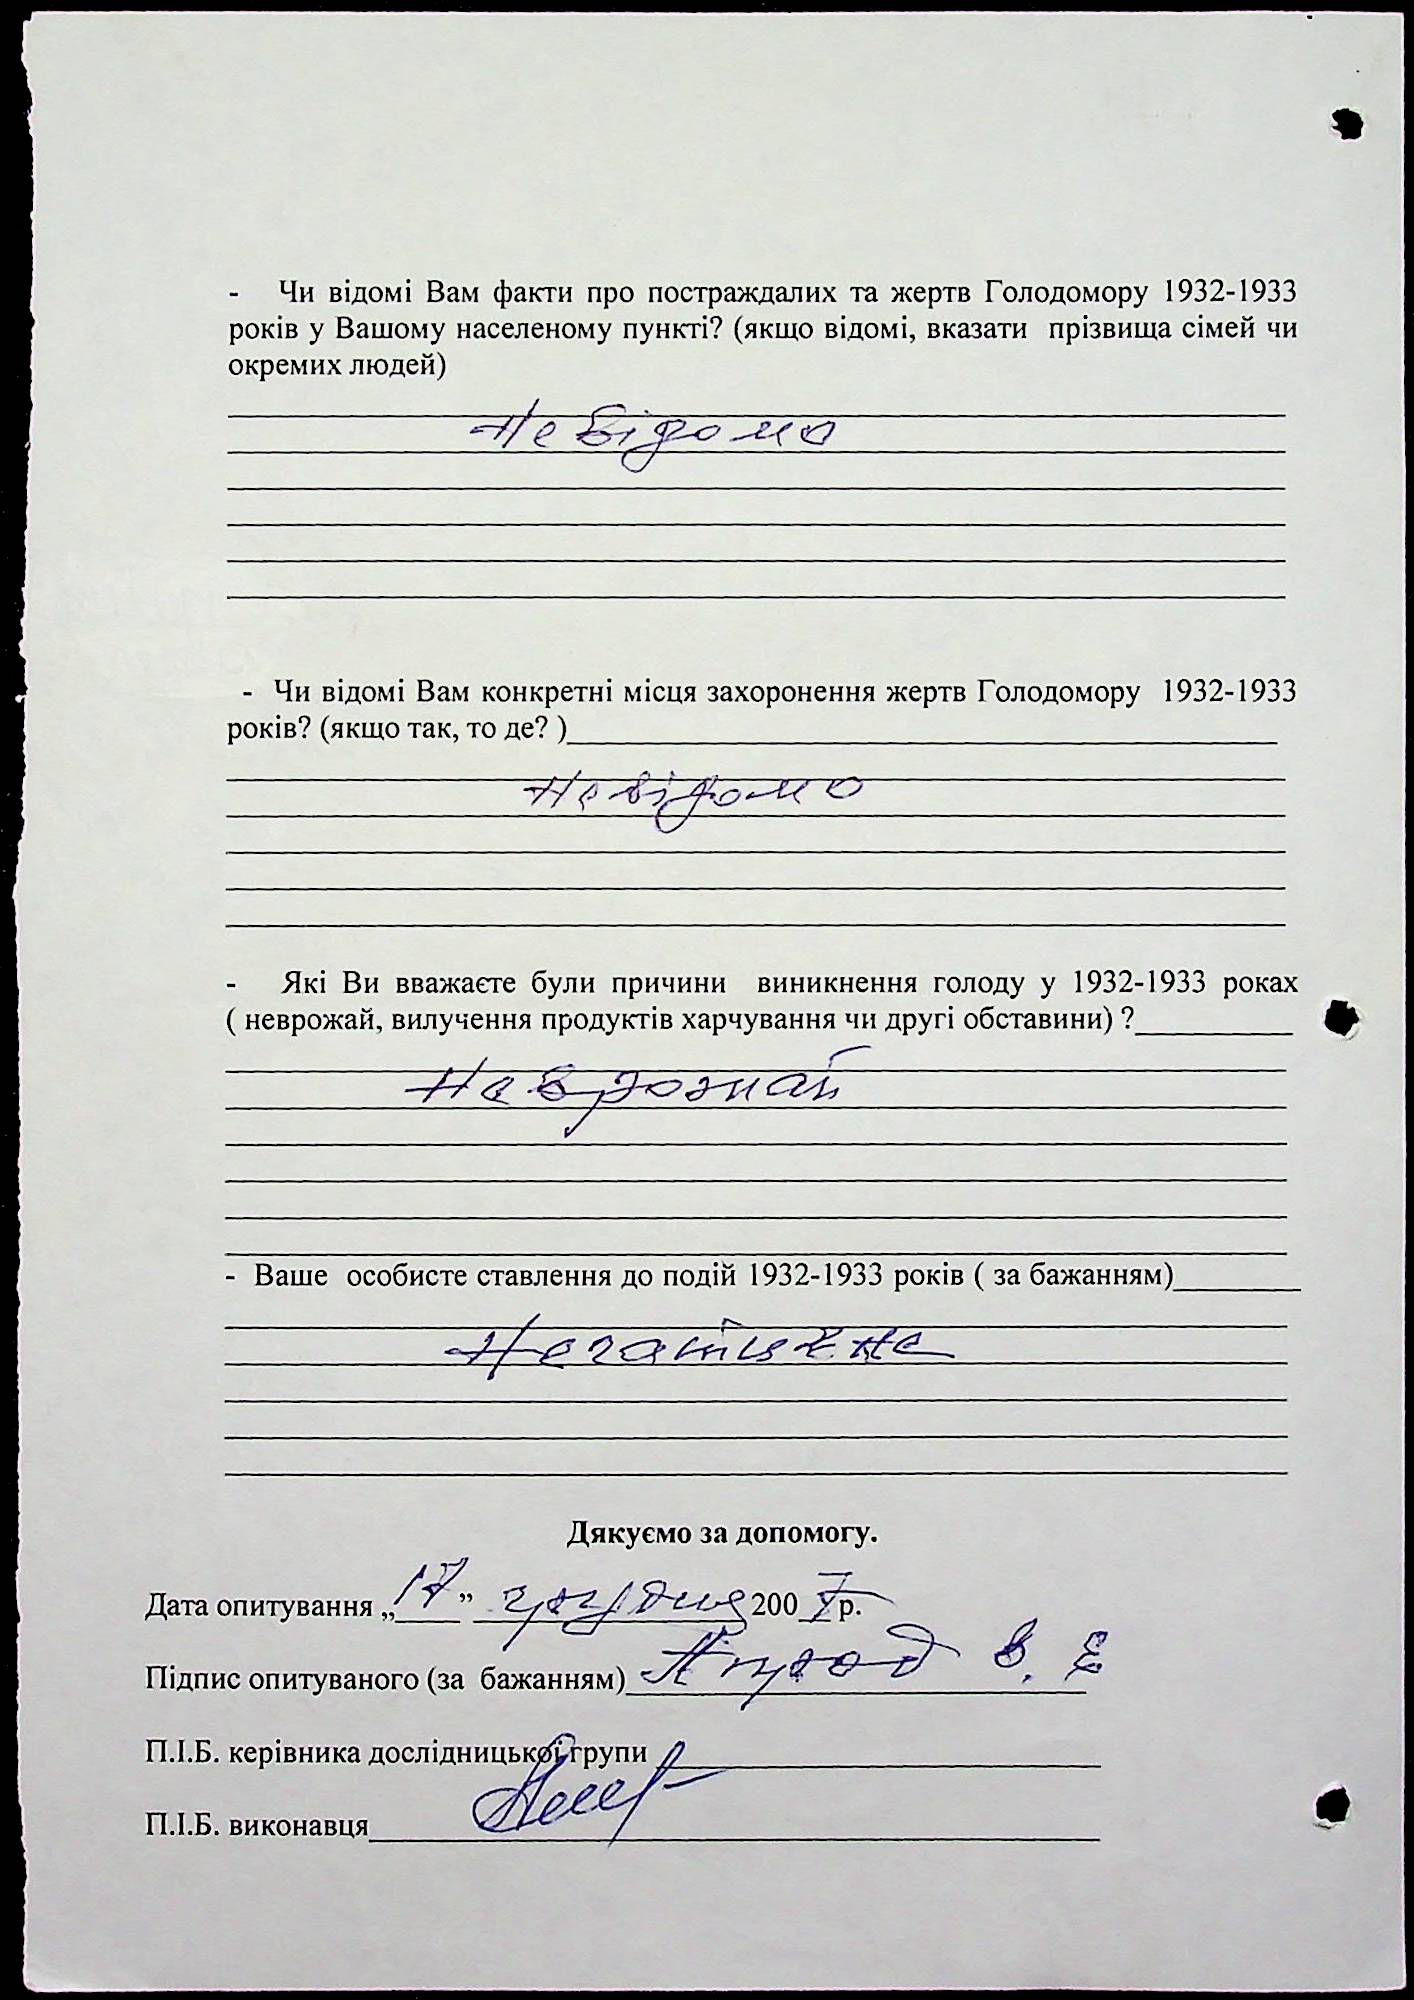 - Чи відомі Вам факти про постраждалих та жертв Голодомору 1932-1933
років у Вашому населеному пункті? (якщо відомі, вказати прізвища сімей чи
окремих людей)
Невідомо
- Чи відомі Вам конкретні місця захоронення жертв Голодомору 1932-1933
років? (якщо так, то де? )
Невідомо
- Які Ви вважаєте були причини виникнення голоду у 1932-1933 роках
( неврожай, вилучення продуктів харчування чи другі обставини) ?
Неврожай
- Ваше особисте ставлення до подій 1932-1933 років ( за бажанням)
Дякуємо за допомогу.
Дата опитування „17” грудня 2007 р.
Підпис опитуваного (за бажанням) В. Є
П.І.Б. керівника дослідницької групи
П.І.Б. виконавця